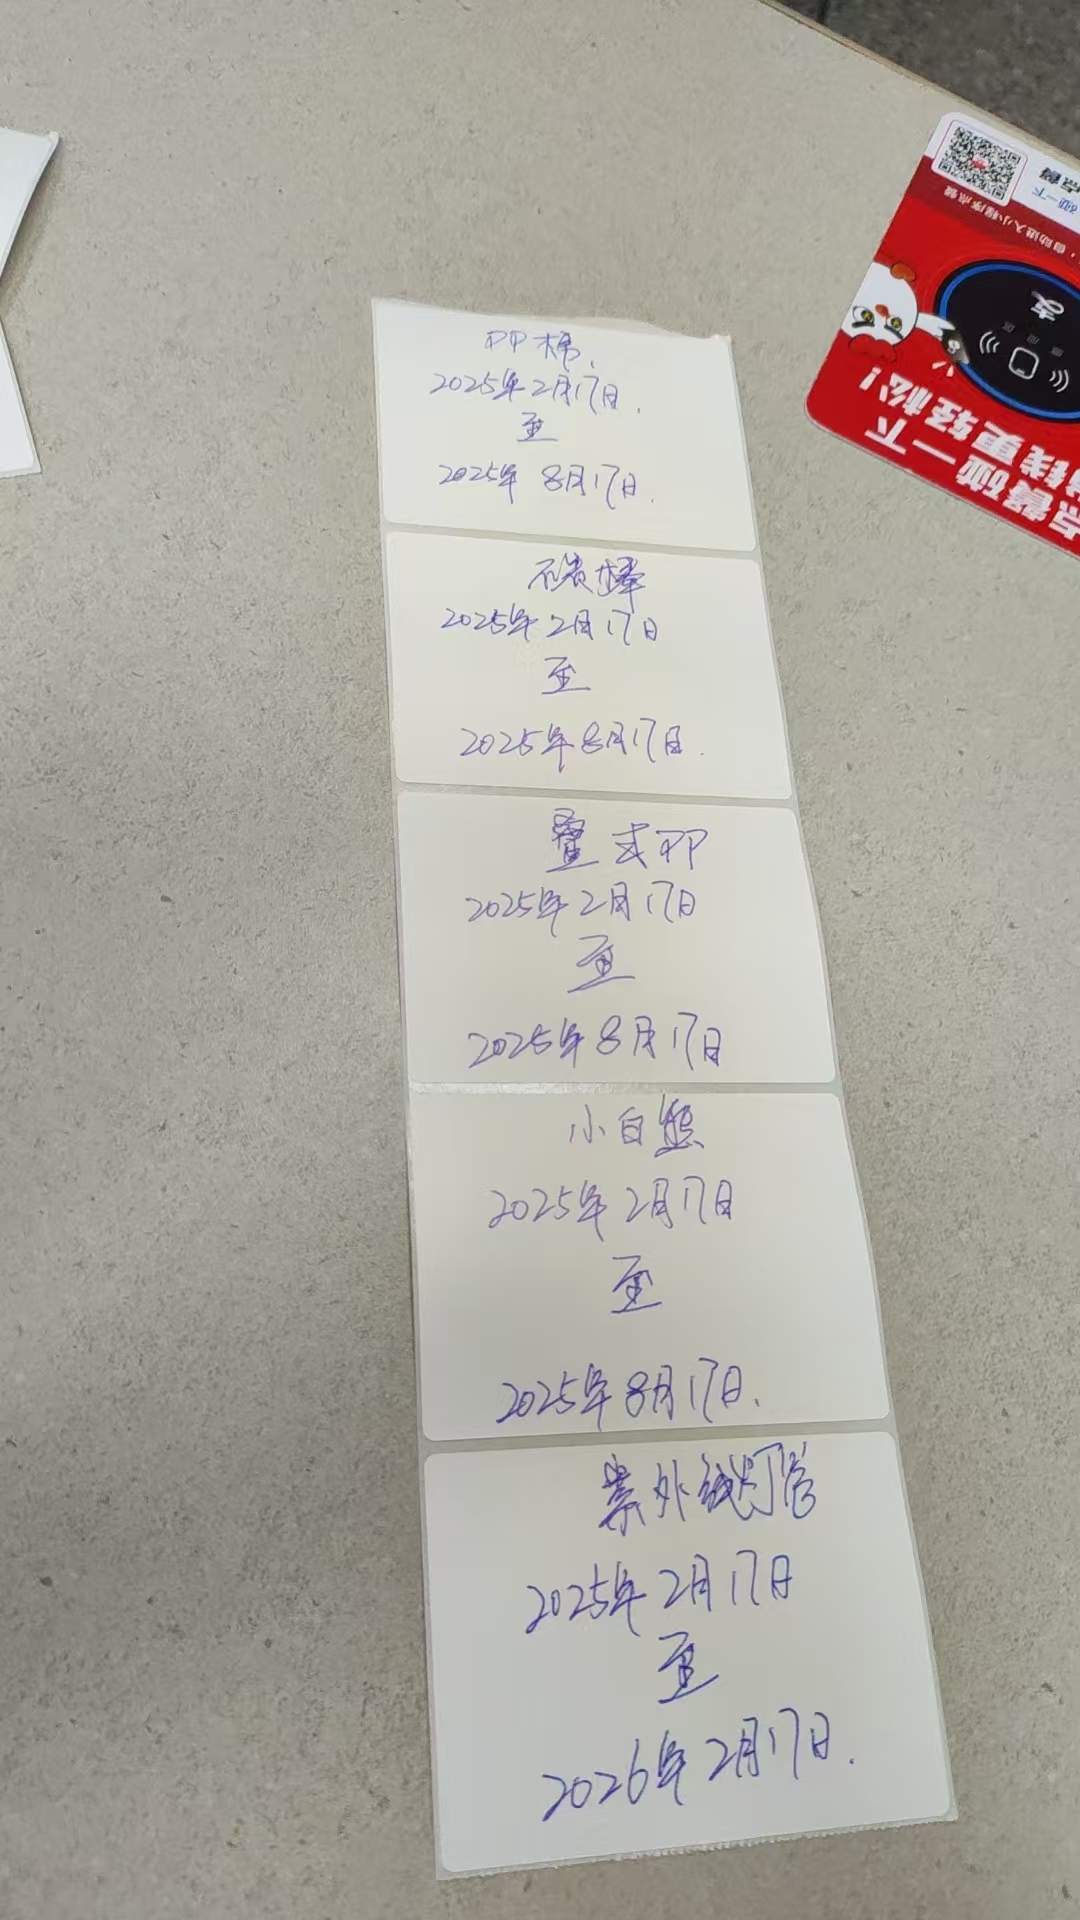 PP棉.
2025年2月17日.
至
2025年8月17日.
碳棒
2025年2月17日
至
2025年8月17日.
叠式PP
2025年2月17日
至
2025年8月17日
小白熊
2025年2月17日
至
2025年8月17日.
紫外线灯管
2025年2月17日
至
2026年2月17日.
碰一下
点餐
自动进入小程序点餐
支
点餐碰一下
钱更轻松!